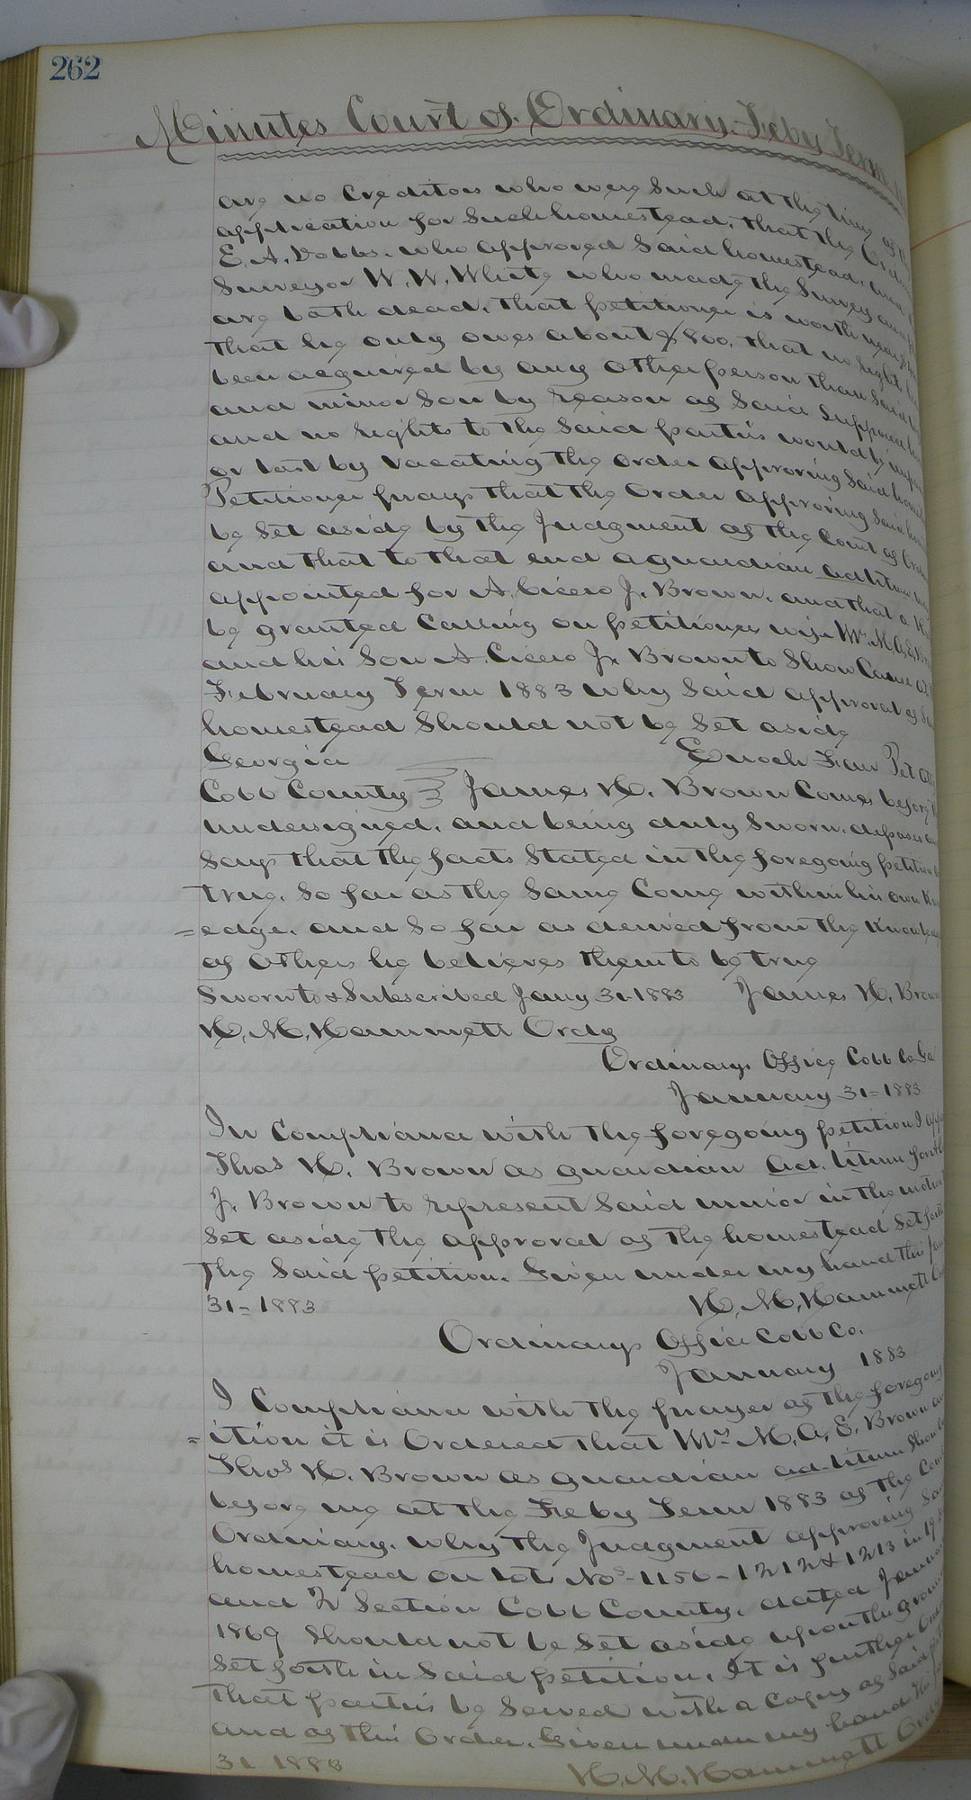 262
Minutes Court of Ordinary Feby Term
are no Creditors who were Such at the time of
application for Such homestead, that the
E. A. Dobbs. who approved Said homestead, and
Surveyor W. W. White who made the Survey
are both dead, that petitioner is worth
that he only owes about $800, that no right
been acquired by any other person than Said
and minor Son by reason of Said
and no rights to the Said parties would be
or lost by vacating the order approving Said
Petitioner prays that the Order approving Said
be Set aside by the Judgment of the Court of
and that to that end a guardian ad litum
appointed for A. Cicero J. Brown. and that a
be granted Calling on petitioners wife Mrs M. A. E.
and his Son A. Cicero J. Brown to Show Cause
February Term 1883 why Said approval of
homestead Should not be Set aside
Georgia Enoch Faw Pet
Cobb County James H. Brown Comes before
undersigned. and being duly Sworn. deposes
Says that the facts Stated in the foregoing petition
true. So far as the Same Come within his own
=edge. and So far as derived from the
of others he believes them to be true
Sworn to & Subscribed Jany 31-1883 James H.
H. M. Hammett Ordy
Ordinarys Office Cobb Co Ga
January 31=1883
In Compliance with the foregoing petition I
Thos H. Brown as guardian ad. litum for
J. Brown to represent Said minor in the
Set aside the approval of the homestead Set
the Said petition. Given under my hand this
31-1883 H. M. Hammett
Ordinarys Office Cobb Co.
January 1883
I Compliance with the prayer of the
=ition it is Ordered that Mrs M. A. E. Brown
Thos H. Brown as guardian ad-litum Show
before me at the Feby Term 1883 of the
Ordinary. why the Judgment approving
homestead on lots Nos-1156-1212 & 1213 in
and 2 Section Cobb County. dated
1869 Should not be Set aside upon the
Set forth in Said petition. It is further
that parties be Served with a Copy of Said
and of this Order. Given under my hand
31 1883 H. M. Hammett